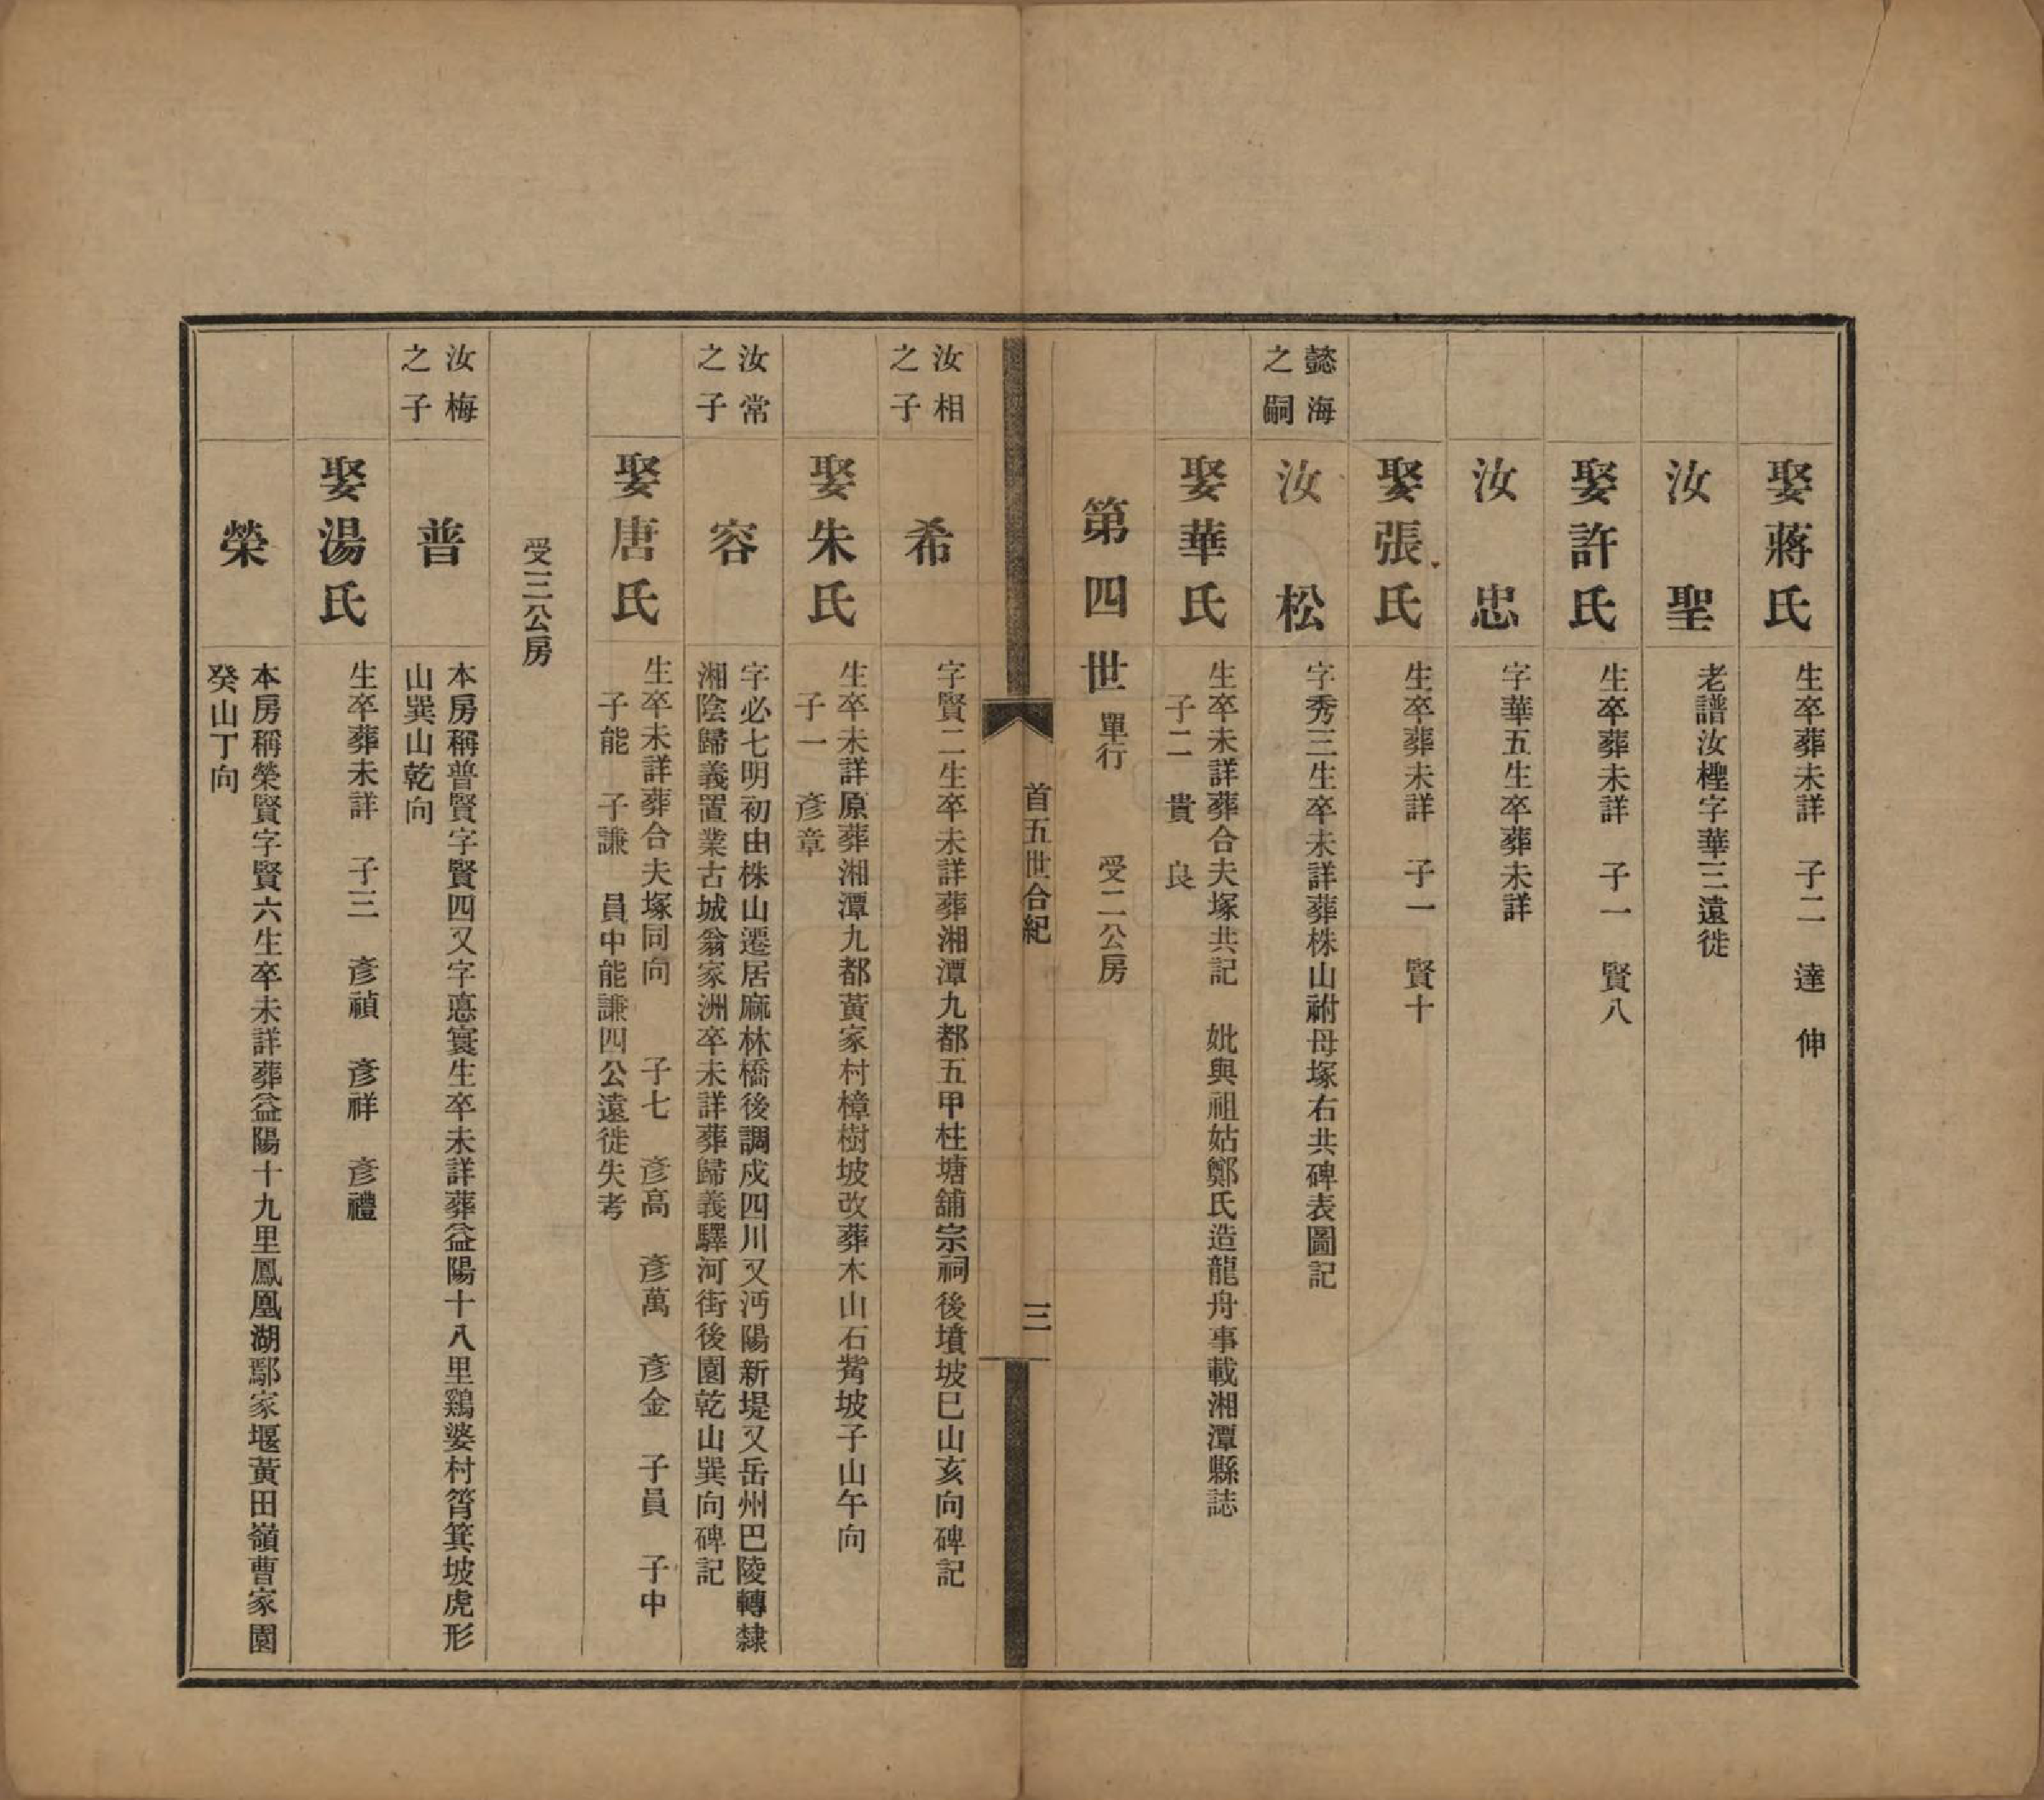 娶蔣氏
生卒葬未詳　子二　達　伸
汝聖
老譜汝檉字華三遠徙
娶許氏
生卒葬未詳　子一　賢八
汝忠
字華五生卒葬未詳
娶張氏
生卒葬未詳　子一　賢十
懿海
之嗣
汝松
字秀三生卒未詳葬株山祔母塚右共碑表圖記
娶華氏
生卒未詳葬合夫塚共記　妣與祖姑鄭氏造龍舟事載湘潭縣誌
子二　貴　良
第四世 單行　受二公房
首五世合紀　三
汝相
之子
希
字賢二生卒未詳葬湘潭九都五甲柱塘舖宗祠後墳坡巳山亥向碑記
娶朱氏
生卒未詳原葬湘潭九都黃家村樟樹坡改葬木山石觜坡子山午向
子一　彥章
汝常
之子
容
字必七明初由株山遷居麻林橋後調戍四川又沔陽新堤又岳州巴陵轉隸
湘陰歸義置業古城翁家洲卒未詳葬歸義驛河街後園乾山巽向碑記
娶唐氏
生卒未詳葬合夫塚同向　子七　彥高　彥萬　彥金　子員　子中
子能　子謙　員中能謙四公遠徙失考
受三公房
汝梅
之子
普
本房稱普賢字賢四又字惪寰生卒未詳葬益陽十八里鷄婆村筲箕坡虎形
山巽山乾向
娶湯氏
生卒葬未詳　子三　彥禎　彥祥　彥禮
榮
本房稱榮賢字賢六生卒未詳葬益陽十九里鳳凰湖鄢家堰黃田嶺曹家園
癸山丁向